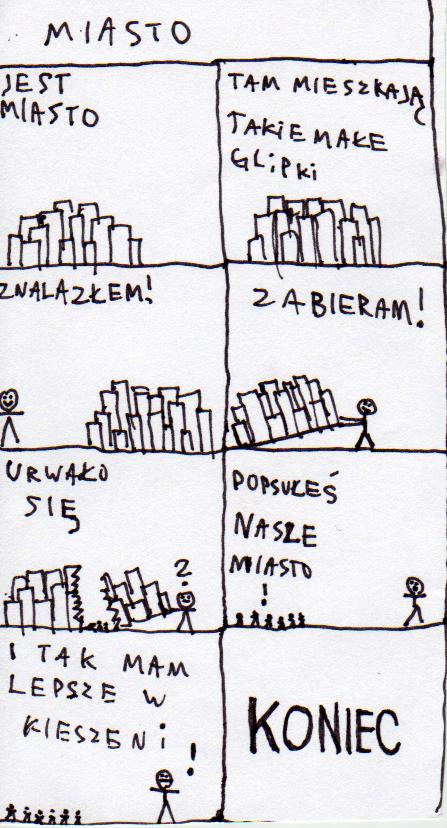 MIASTO
JEST
MIASTO
TAM MIESZKAJĄ
TAKIE MAŁE
GLIPKI
ZNALAZŁEM!
ZABIERAM!
URWAŁO
SIĘ
?
POPSUŁEŚ
NASZE
MIASTO
!
I TAK MAM
LEPSZE W
KIESZENI
!
KONIEC